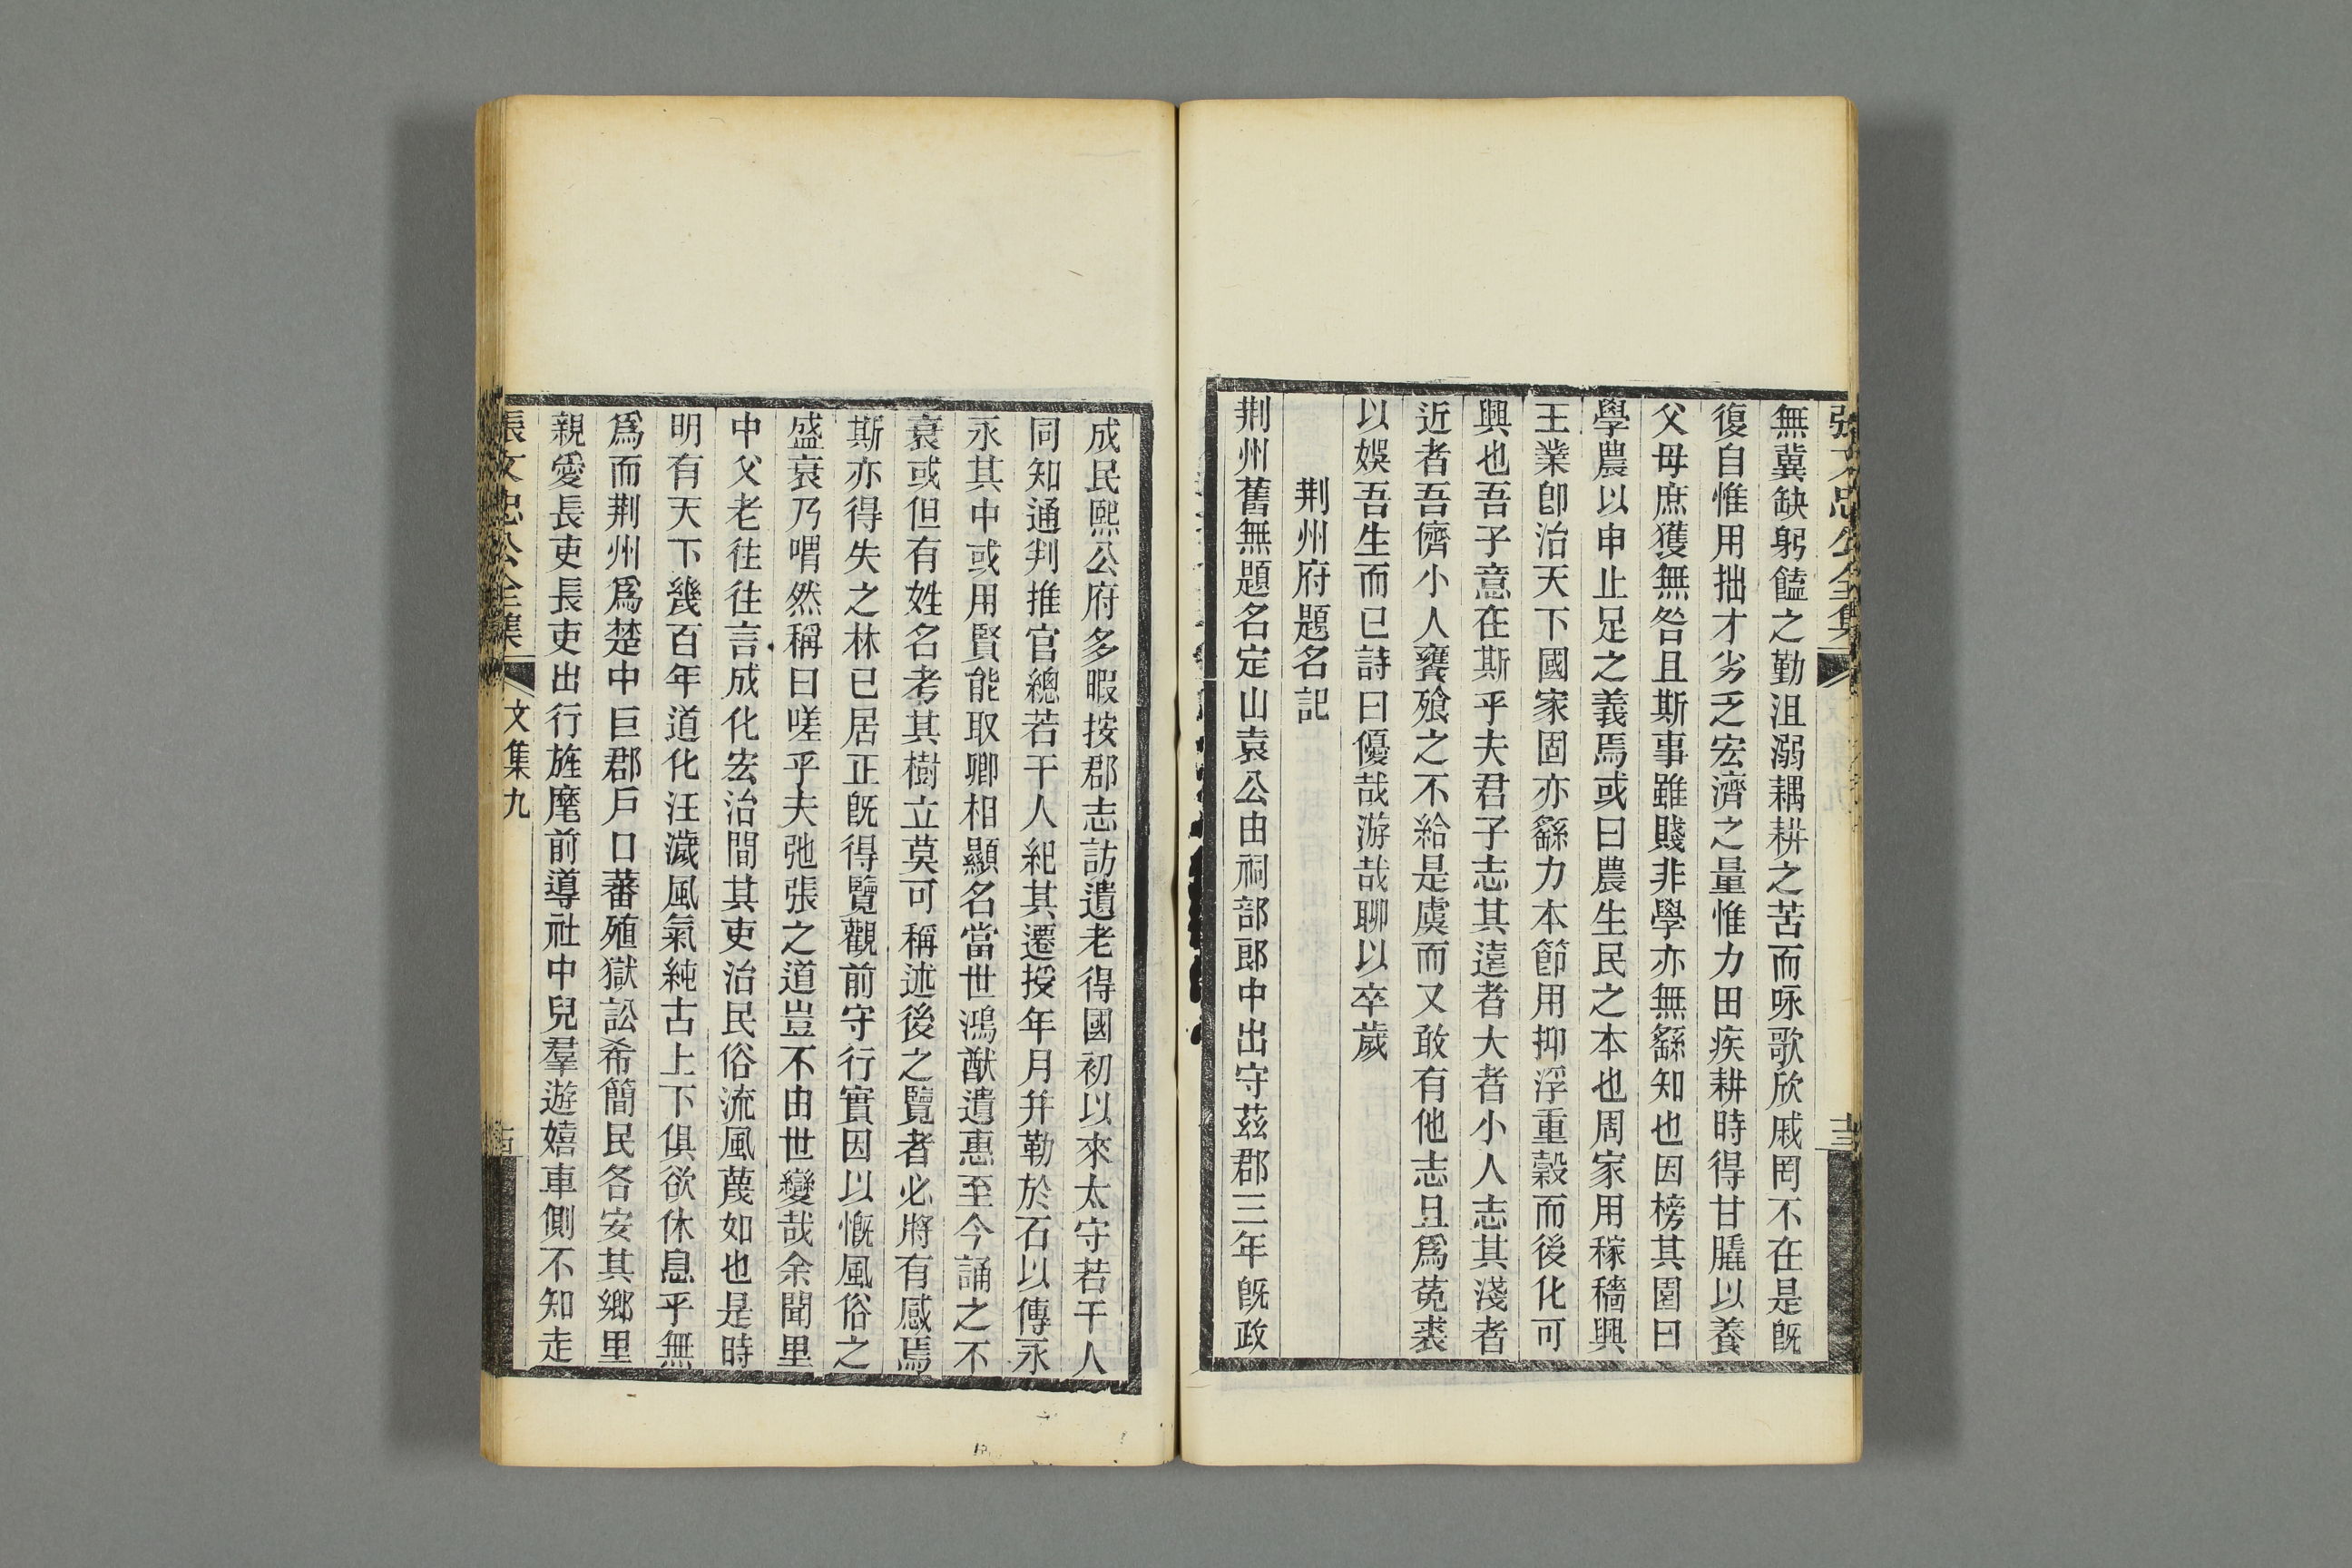 張文忠公全集
十三
無冀缺躬饁之勤沮溺耦耕之苦而咏歌欣戚罔不在是旣
復自惟用拙才劣乏宏濟之量惟力田疾耕時得甘膬以養
父母庶獲無咎且斯事雖賤非學亦無繇知也因榜其園曰
學農以申止足之義焉或曰農生民之本也周家用稼穡興
王業卽治天下國家固亦繇力本節用抑浮重穀而後化可
興也吾子意在斯乎夫君子志其遠者大者小人志其淺者
近者吾儕小人饔飧之不給是虞而又敢有他志且爲菟裘
以娛吾生而已詩曰優哉游哉聊以卒歲
荆州府題名記
荆州舊無題名定山袁公由祠部郎中出守茲郡三年旣政
成民熙公府多暇按郡志訪遺老得國初以來太守若干人
同知通判推官總若干人紀其遷授年月幷勒於石以傳永
永其中或用賢能取卿相顯名當世鴻猷遺惠至今誦之不
衰或但有姓名考其樹立莫可稱述後之覽者必將有感焉
斯亦得失之林已居正旣得覽觀前守行實因以慨風俗之
盛衰乃喟然稱曰嗟乎夫弛張之道豈不由世變哉余聞里
中父老往往言成化宏治間其吏治民俗流風蔑如也是時
明有天下幾百年道化汪濊風氣純古上下俱欲休息乎無
爲而荆州爲楚中巨郡戶口蕃殖獄訟希簡民各安其鄉里
親愛長吏長吏出行旌麾前導社中兒羣遊嬉車側不知走
張文忠公全集
文集九